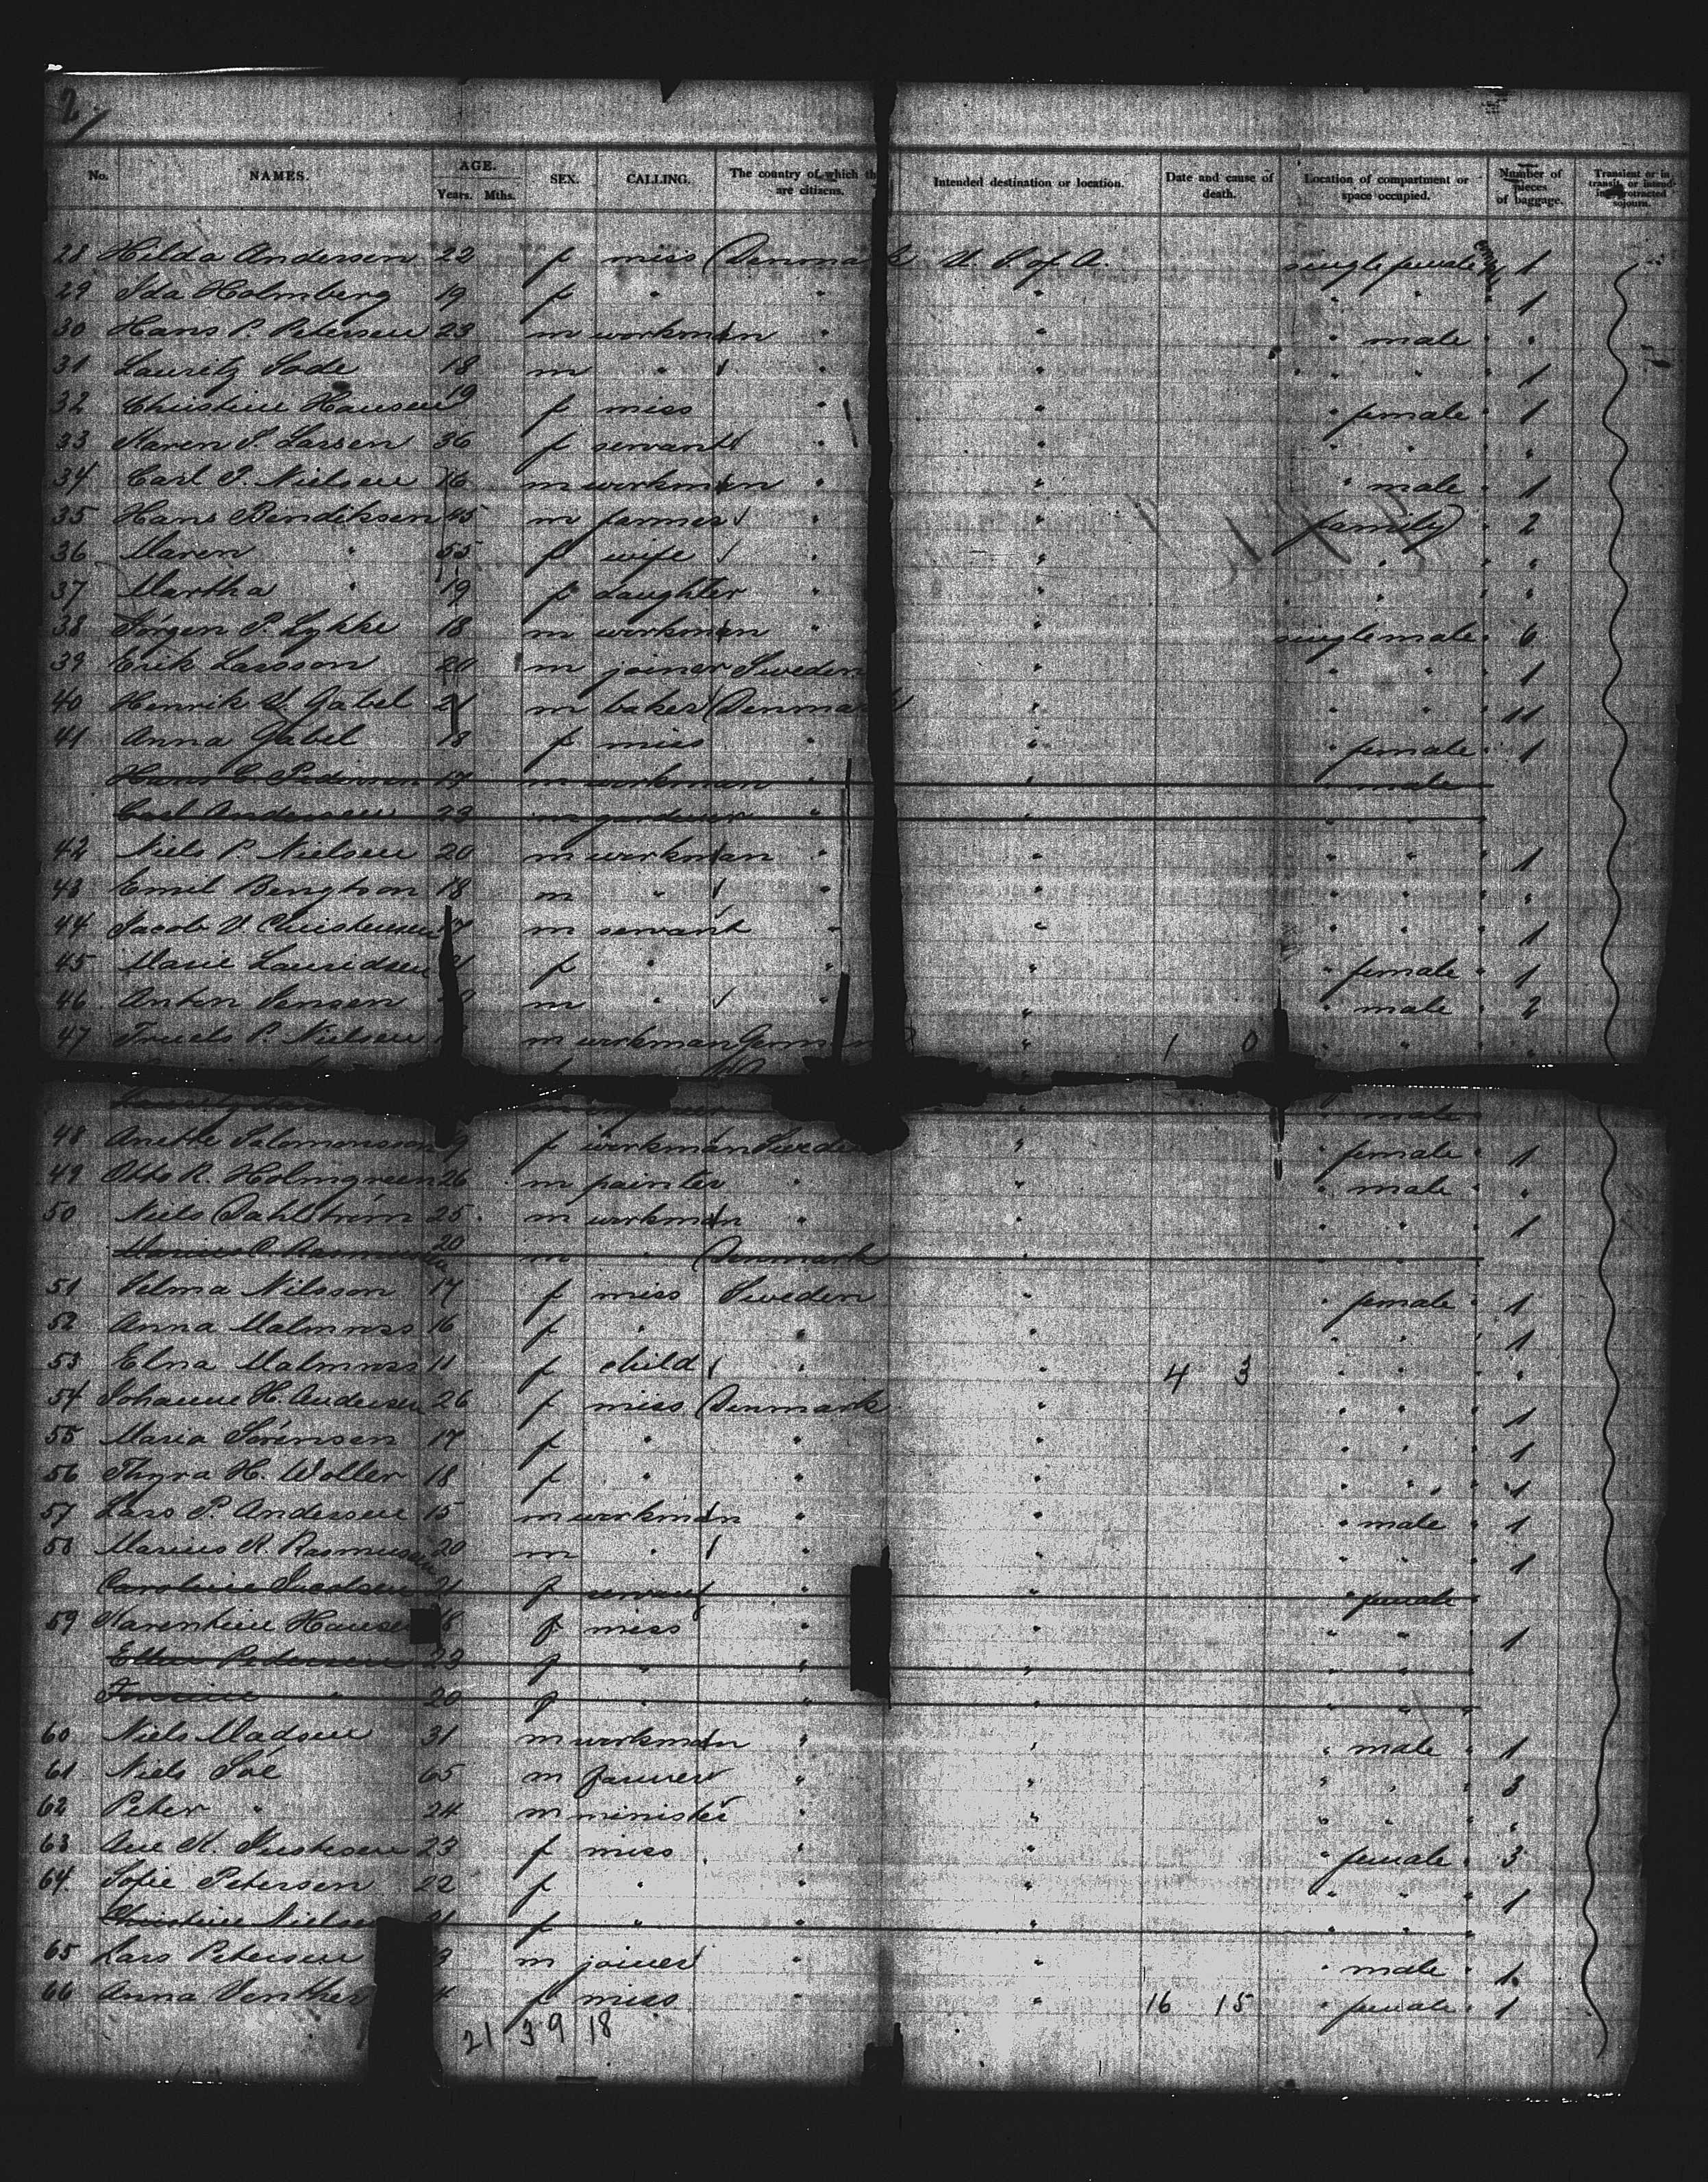 2/
No. NAMES. AGE. Years. Mths. SEX. CALLING. The country of which th are citizens. Intended destination or location. Date and cause of death. Location of compartment or space occupied. Number of pieces of baggage. Transient or in transit, or intend- ing protracted sojourn.
28 Hilda Andersen 22 f miss Denmark U. S. of A. single female 1
29 Ida Holmberg 19 f " " " " " 1
30 Hans P. Petersen 23 m workman " " " male "
31 Lauritz Sode 18 m " " " " " 1
32 Christine Hansen 19 f miss " " " female 1
33 Karen S. Larsen 36 f servant " " " " "
34 Carl P. Nielsen 16 m workman " " " male 1
35 Hans Bendiksen 45 m farmer " " family 2
36 Maren " 55 f wife " " " "
37 Martha " 19 f daughter " " " "
38 Jörgen P. Lykke 18 m workman " " single male 6
39 Erik Larsson 20 m joiner Sweden " " " 1
40 Henrik V. Gabel 21 m baker Denmark " " " 11
41 Anna Gabel 18 f miss " " " female 1
Hans C. Pedersen 17 m workman " " " male
Carl Andersen 23 m gardener " " " "
42 Niels P. Nielsen 20 m workman " " " " 1
43 Emil Bengtson 18 m " " " " " "
44 Jacob V. Christensen 17 m servant " " " " 1
45 Marie Lauridsen f " " " " female 1
46 Anton Jensen m " " " " male 2
47 Truels P. Nielsen m workman " 1 0 " " "
male
48 Anette Salomonsson 9 f workman Sweden " " female 1
49 Otto R. Holmgreen 26 m painter " " " male "
50 Niels Dahlström 25 m workman " " " " 1
Marius C. Rasmussen 20 m " Denmark " " "
51 Selma Nilsson 17 f miss Sweden " " female 1
52 Anna Malmross 16 f " " " " " 1
53 Elna Malmross 11 f child " " 4 3 " " "
54 Johanne H. Andersen 26 f miss Denmark " " " 1
55 Maria Sörensen 17 f " " " " " 1
56 Thyra H. Woller 18 f " " " " " 1
57 Lars P. Andersen 15 m workman " " " male 1
58 Marius R. Rasmussen 20 m " " " " " 1
Caroline 21 f servant " " " female
59 Karentine Hansen 18 f miss " " " " 1
Ellen Pedersen 23 f " " " " "
" 20 f " " " " "
60 Niels Madsen 31 m workman " " " male 1
61 Niels Soe 65 m farmer " " " " 3
62 Peter " 24 m minister " " " " "
63 Ane K. 23 f miss " " " female 3
64 Sofie Petersen 22 f " " " " " 1
Christine Nielsen 21 f " " " " "
65 Lars Petersen 3 m joiner " " " male 1
66 Anna 4 f miss " " 16 15 " female 1
21 39 18